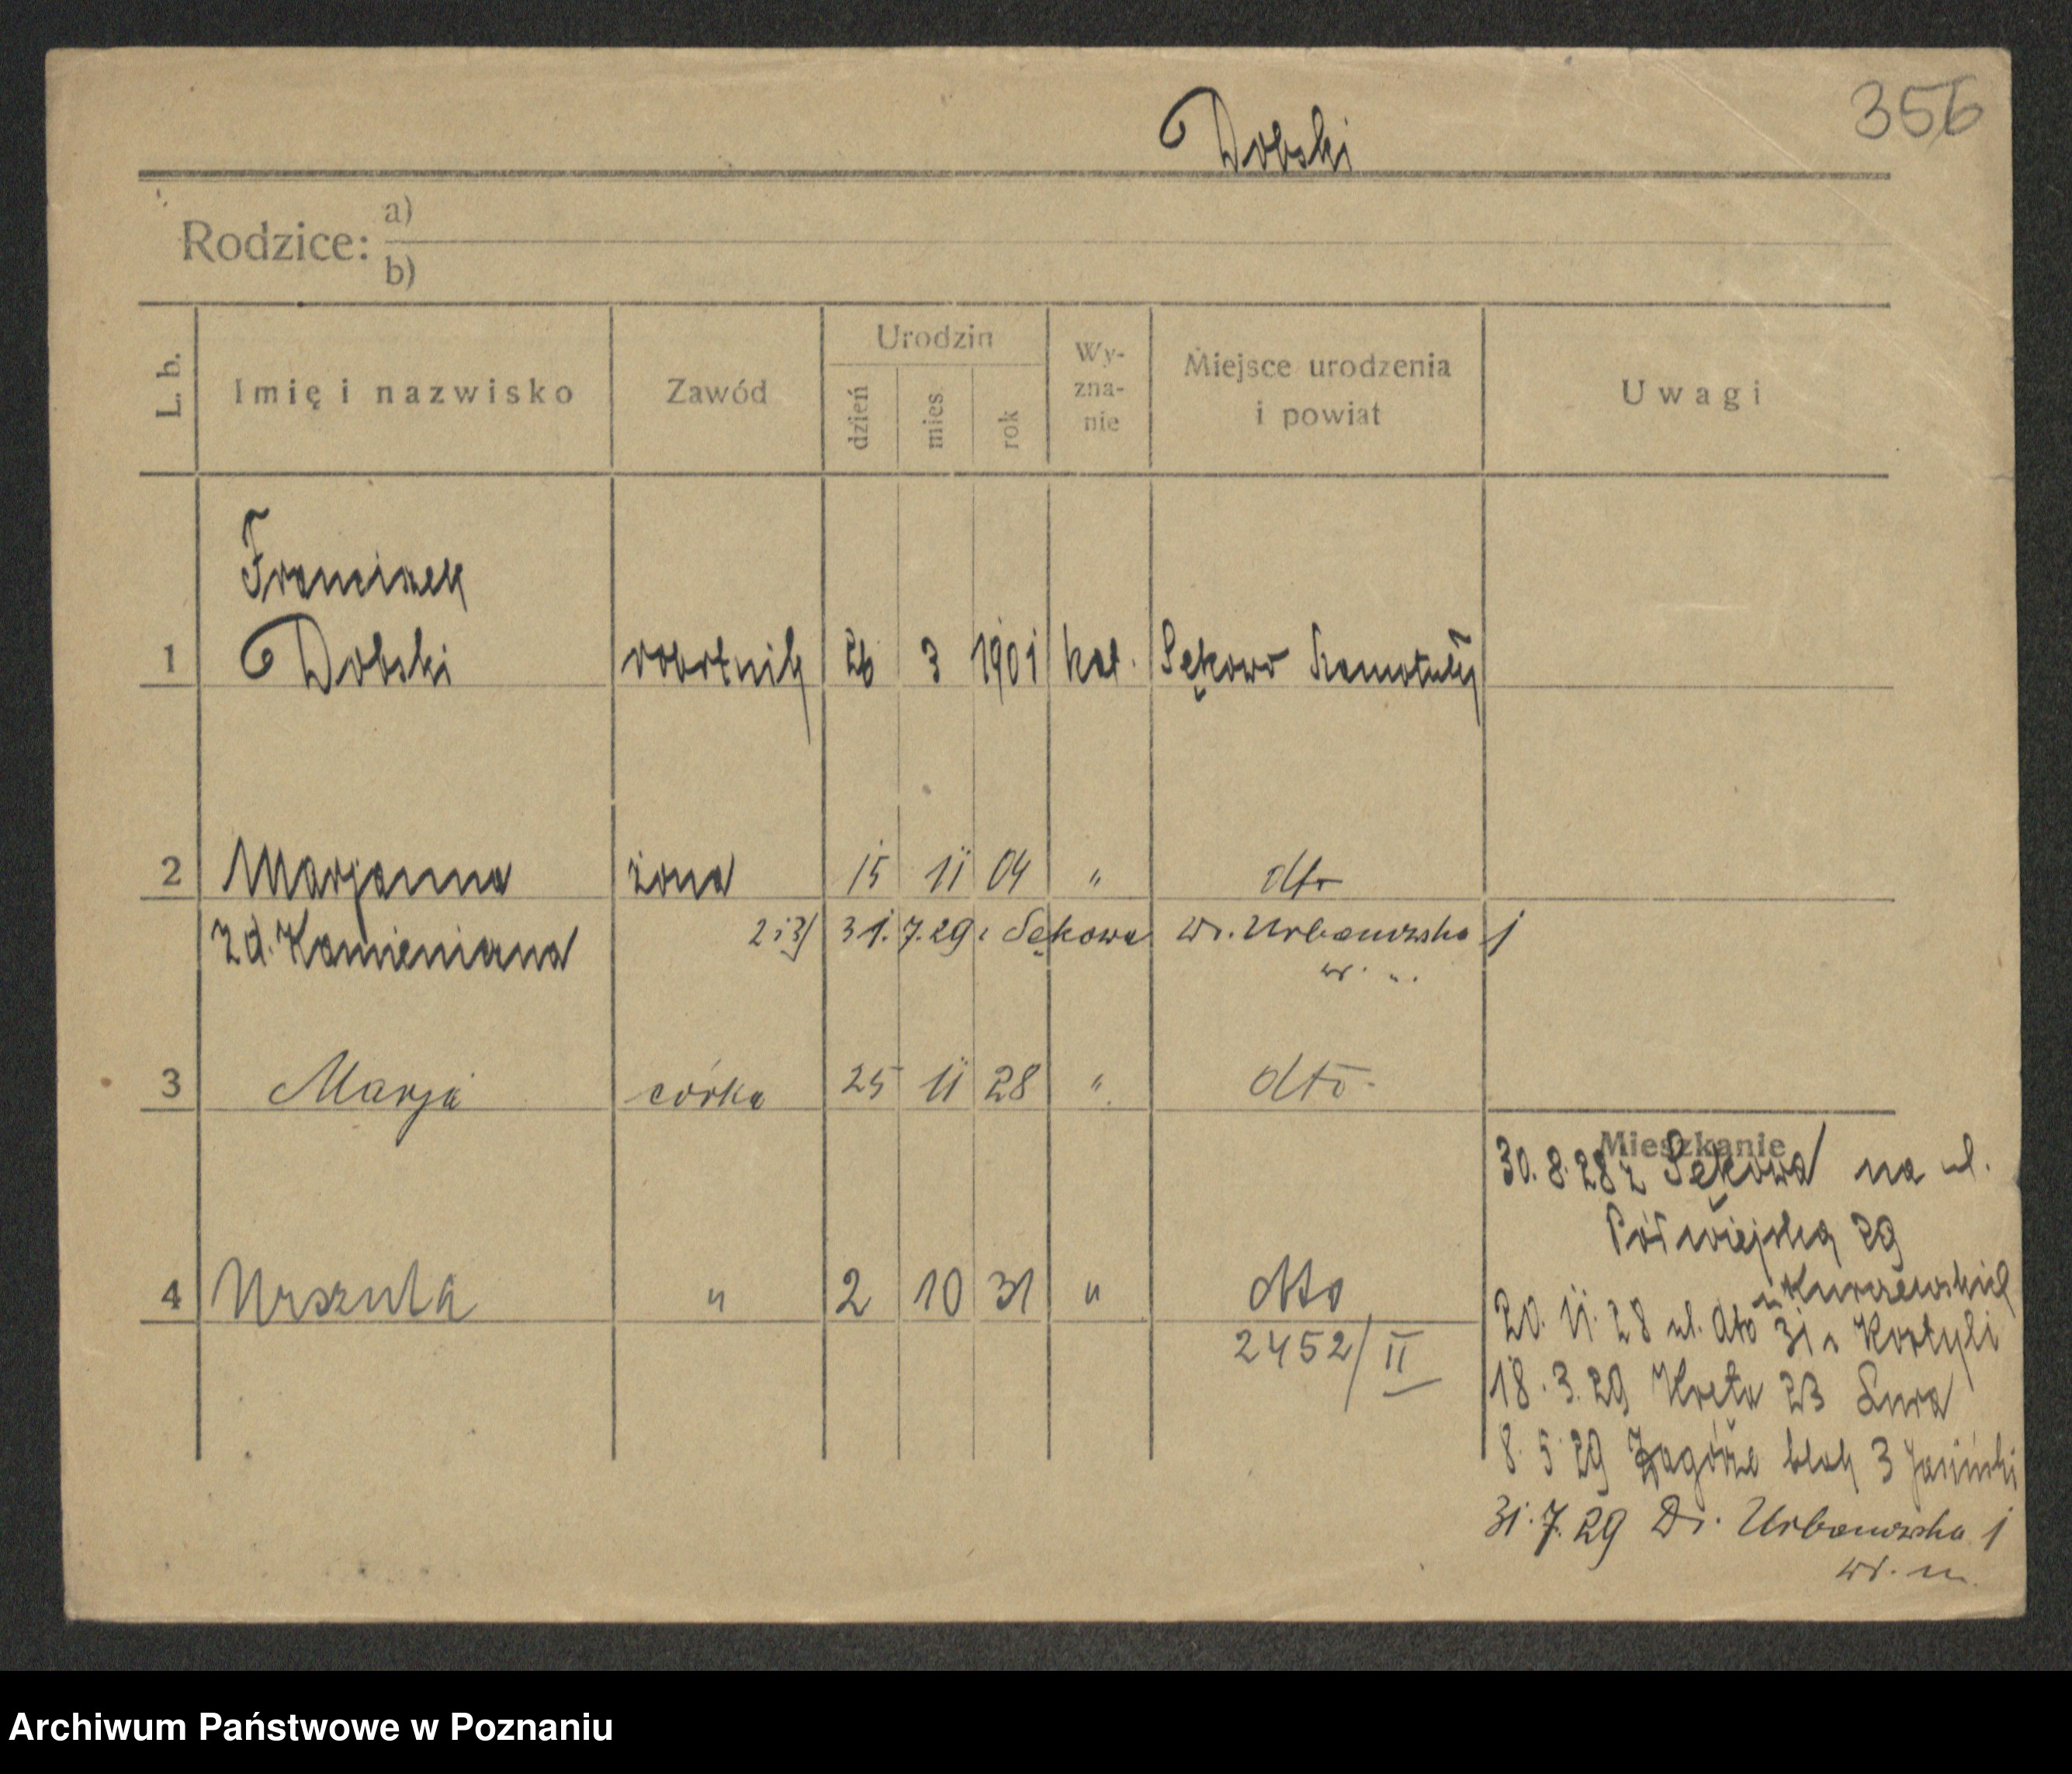 356
Dobski
Rodzice: a)
b)
L. b. Imię i nazwisko Zawód Urodzin dzień mies. rok Wy-zna-nie Miejsce urodzenia i powiat Uwagi
Franciszek
1 Dobski robotnik 26 3 1901 kat. Sękowo Szamotuły
2 Marjanna żona 15 11 04 " dto
zd. Kamieniarza 2 i 3/ 31.7.29 z Sękowa Dr. Urbanowska 1
3 Marja córka 25 11 28 " dto
Mieszkanie
30.8.28 z Sękowa na ul.
Półwiejską 29
u Kurzewskiej
4 Urszula " 2 10 31 " dto
20.11.28 ul. dto 31 u Kortyli
2452/II
18.3.29 Kreta 23 Lura
8.5.29 Zagórze blok 3 Jasiński
31.7.29 Dr. Urbanowska 1
Archiwum Państwowe w Poznaniu